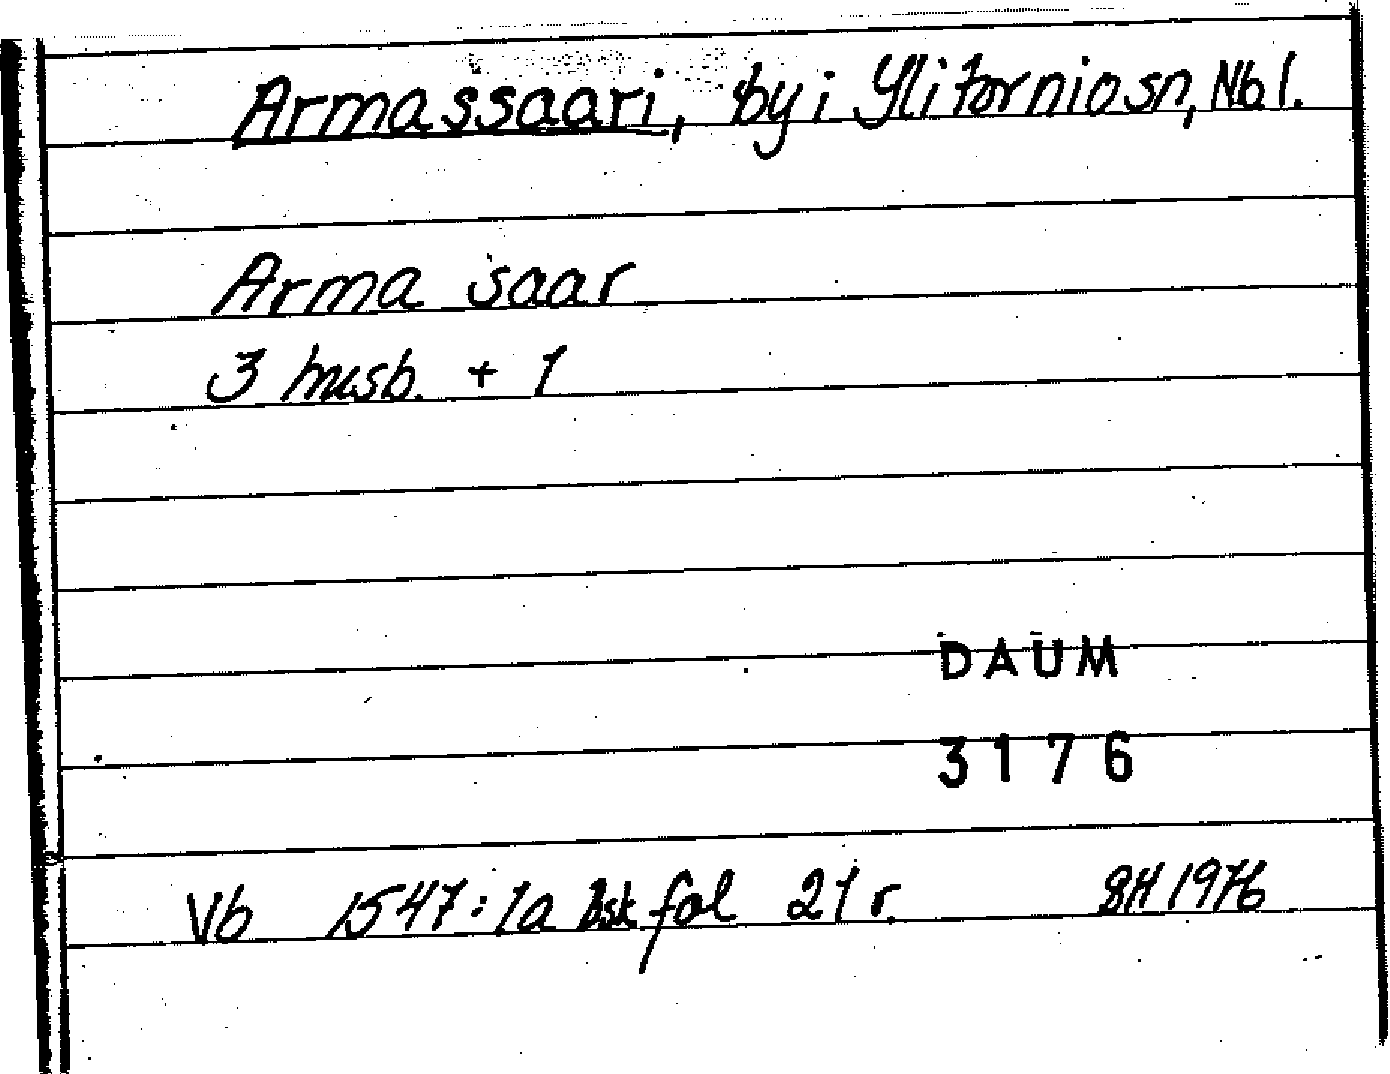 Armassaari, by i Ylitorniosn, Nbl.
Arma saar
3 husb. + 1
DAUM
3176
Vb 1547:1a Åsk fol 21 r. BH 1976